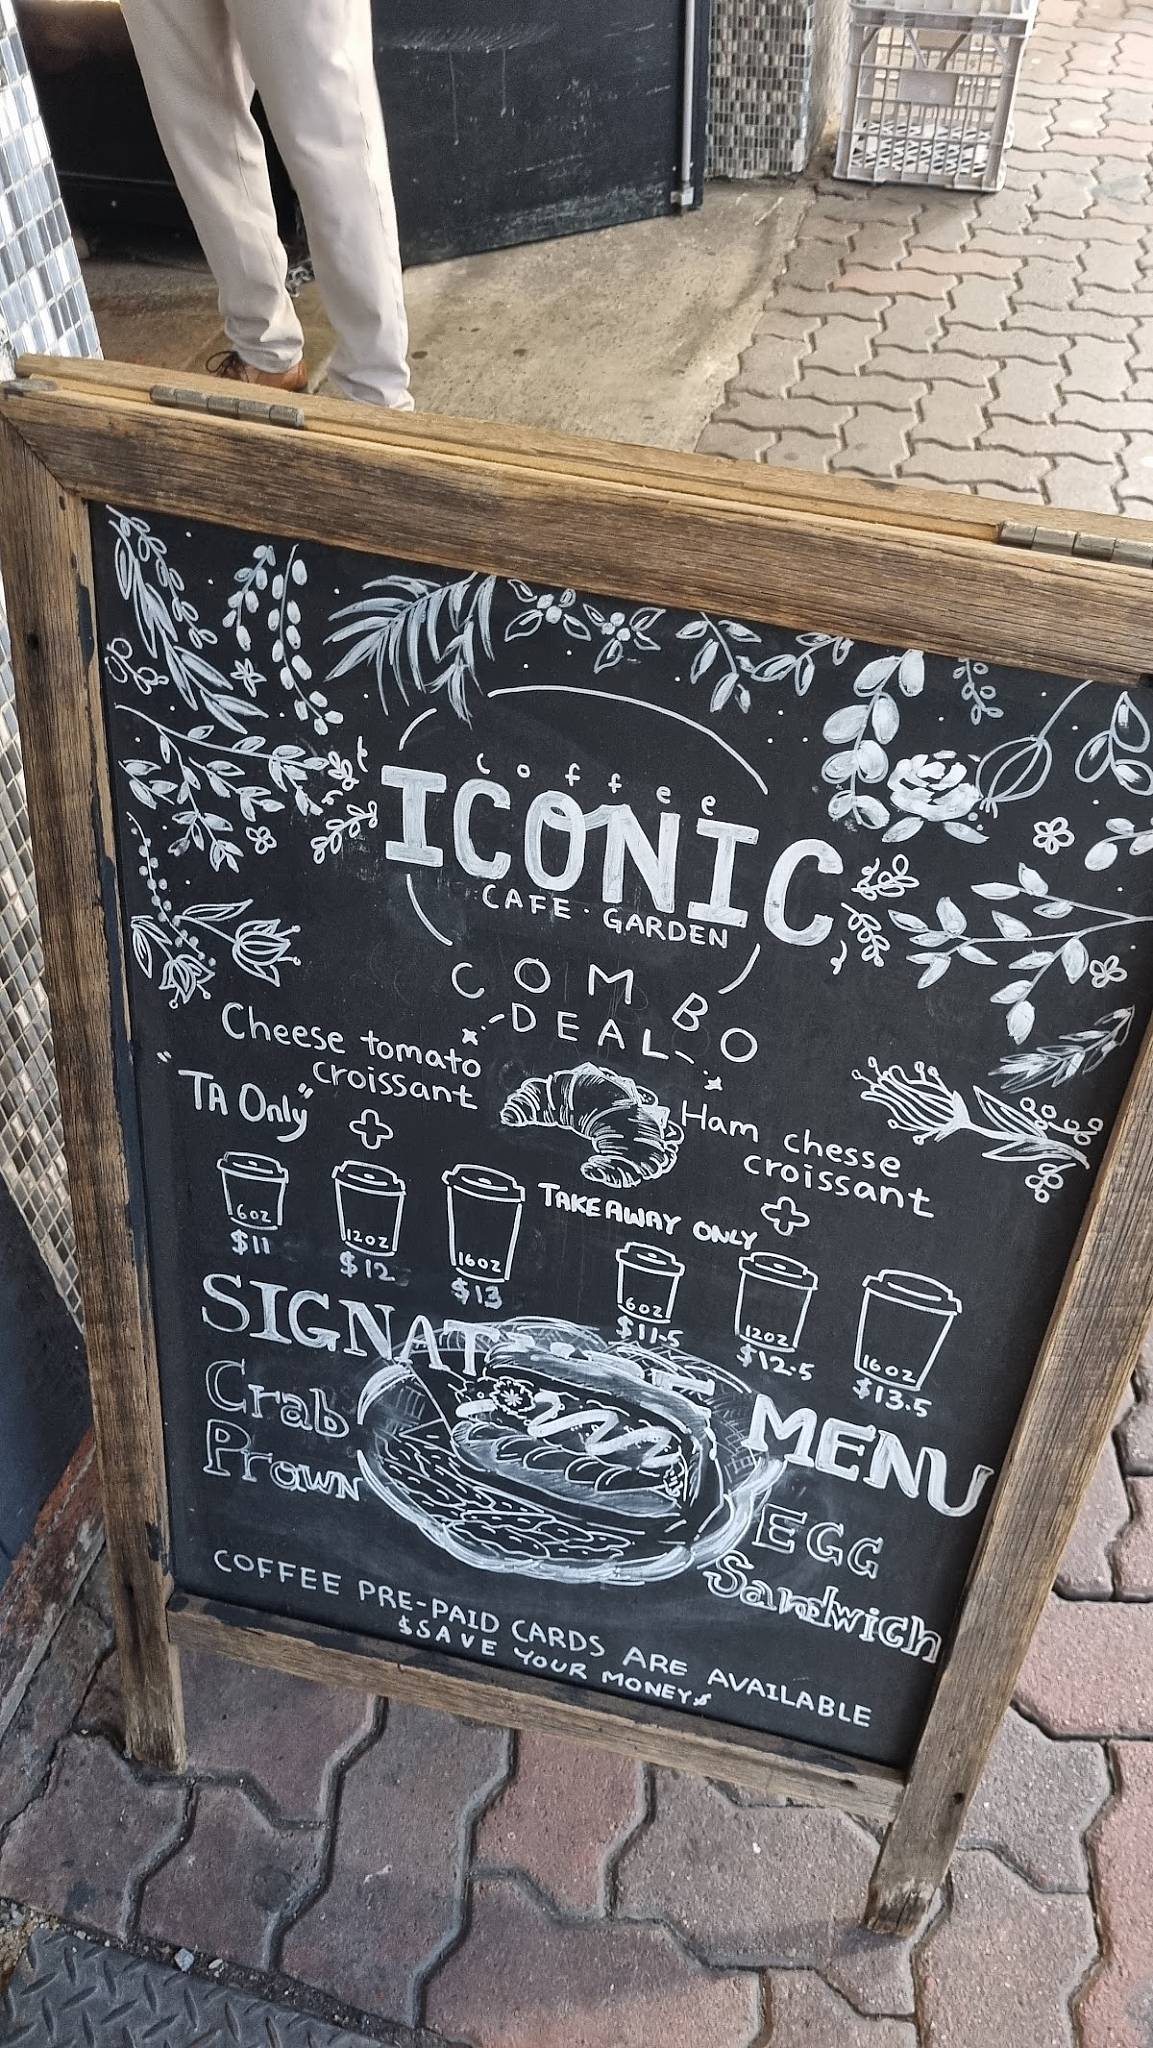 coffee
ICONIC
CAFE · GARDEN
COMBO
DEAL
Cheese tomato
croissant
"TA Only"
6oz
$11
12oz
$12
16oz
$13
Ham chesse
croissant
TAKE AWAY ONLY
6oz
$11.5
12oz
$12.5
16oz
$13.5
SIGNAT
MENU
Crab
Prawn
EGG
Sandwich
COFFEE PRE-PAID CARDS ARE AVAILABLE
$SAVE YOUR MONEY$